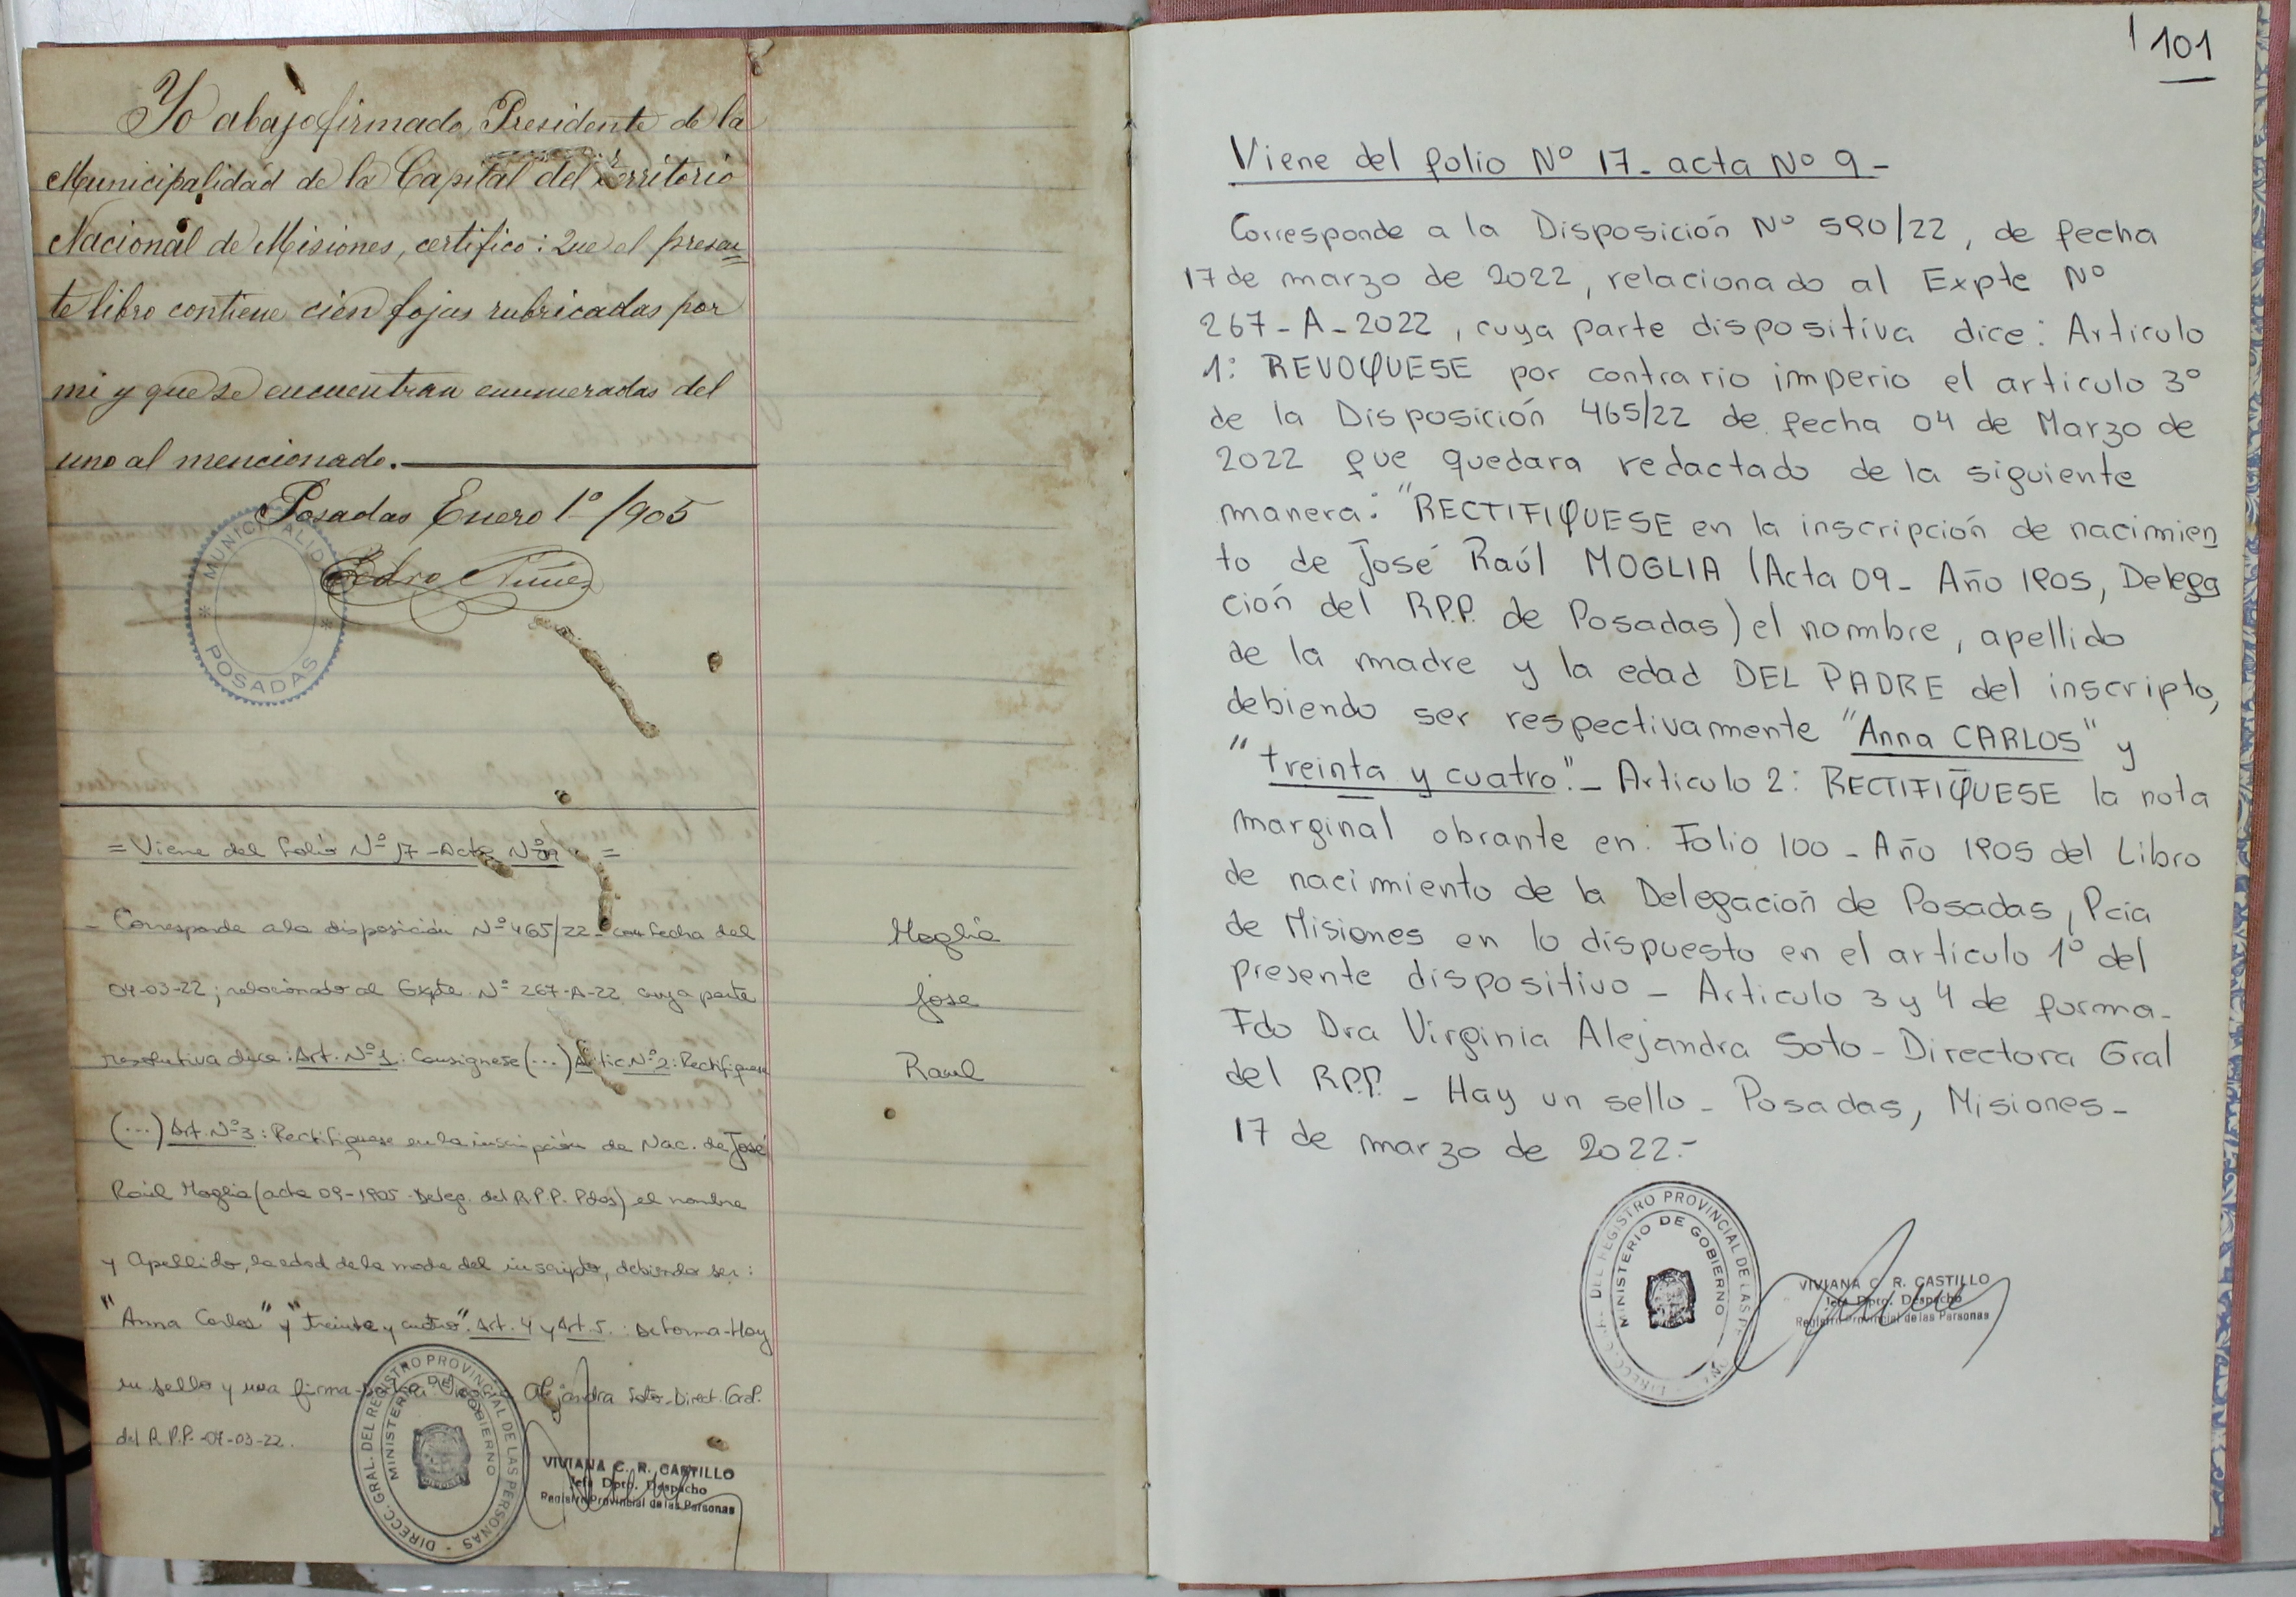 Yo abajo firmado, Presidente de la
Municipalidad de la Capital del Territorio
Nacional de Misiones, certifico: Que el presen
te libro contiene cien fojas rubricadas por
mi y que se encuentran enumeradas del
uno al mencionado.
Posadas Enero 1º/905
Pedro Núñez
MUNICIPALIDAD
* POSADAS *
= Viene del folio Nº 17 - Acta Nº 09 =
- Corresponde a la disposición Nº 465/22 - con fecha del
04-03-22; relacionado al Expte. Nº 267-A-22 cuya parte
resolutiva dice: Art. Nº 1: Consignese (...) Artic Nº 2: Rectifiquese
(...) Art. Nº 3: Rectifiquese en la inscripción de Nac. de José
Raúl Moglia (acta 09-1905 - Deleg. del R.P.P. Pdas) el nombre
y Apellido, la edad de la madre del inscripto, debiendo ser:
"Anna Carlos" y "treinta y cuatro". Art. 4 y Art. 5.: De forma - Hay
un sello y una firma Alejandra Soto - Direct. Gral.
del R.P.P. -04-03-22.
Moglia
Jose
Raul
DIRECC. GRAL. DEL REGISTRO PROVINCIAL DE LAS PERSONAS -
MINISTERIO DE GOBIERNO
VIVIANA C. R. CASTILLO
Jefa Dpto. Despacho
Registro Provincial de las Personas
101
Viene del folio Nº 17 - acta Nº 9 -
Corresponde a la Disposición Nº 590/22, de fecha
17 de marzo de 2022, relacionado al Expte Nº
267-A-2022, cuya parte dispositiva dice: Articulo
1: REVOQUESE por contrario imperio el articulo 3º
de la Disposición 465/22 de fecha 04 de Marzo de
2022 que quedara redactado de la siguiente
manera: "RECTIFIQUESE en la inscripción de nacimien
to de José Raúl MOGLIA (Acta 09 - Año 1905, Delega
ción del R.P.P. de Posadas) el nombre, apellido
de la madre y la edad DEL PADRE del inscripto,
debiendo ser respectivamente "Anna CARLOS" y
"treinta y cuatro". - Articulo 2: RECTIFIQUESE la nota
marginal obrante en: Folio 100 - Año 1905 del Libro
de nacimiento de la Delegación de Posadas, Pcia
de Misiones en lo dispuesto en el articulo 1º del
presente dispositivo - Articulo 3 y 4 de forma -
Fdo Dra Virginia Alejandra Soto - Directora Gral
del R.P.P. - Hay un sello - Posadas, Misiones -
17 de marzo de 2022.-
DEL REGISTRO PROVINCIAL DE LAS
MINISTERIO DE GOBIERNO
VIVIANA C. R. CASTILLO
Jefa Dpto. Despacho
Registro Provincial de las Personas